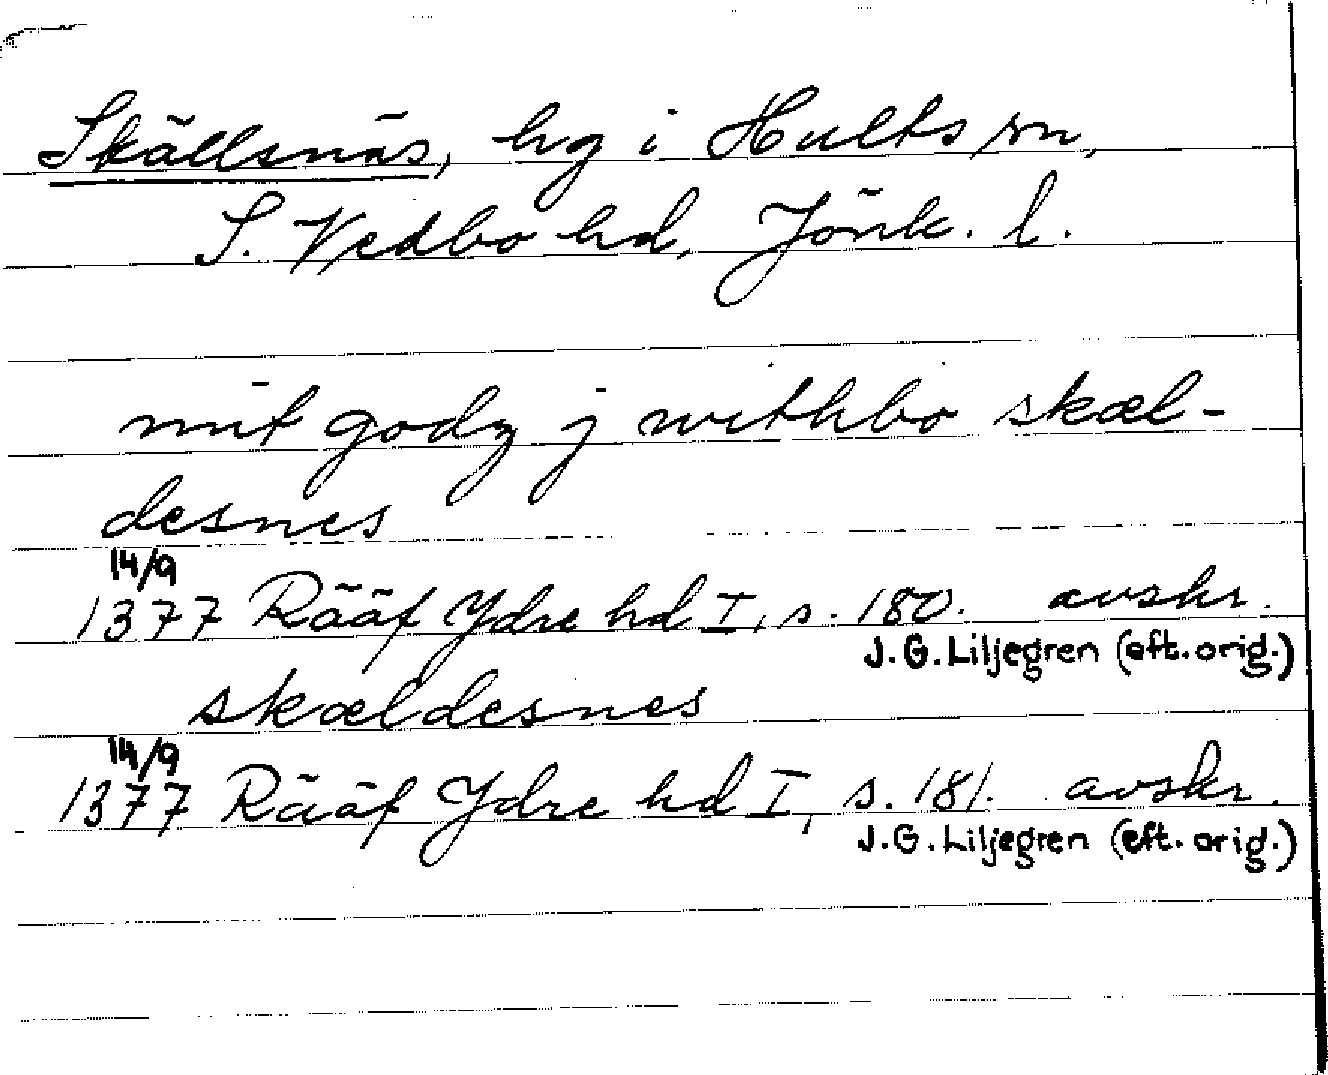 Skällsnäs, hg i Hults sn,
S. Vedbo hd, Jönk. l.
mit godz j withbo skæl-
desnes
14/9
1377 Rääf Ydre hd I, s. 180. avskr.
J.G. Liljegren (eft. orig.)
skældesnes
14/9
1377 Rääf Ydre hd I, s. 181. avskr.
J.G. Liljegren (eft. orig.)